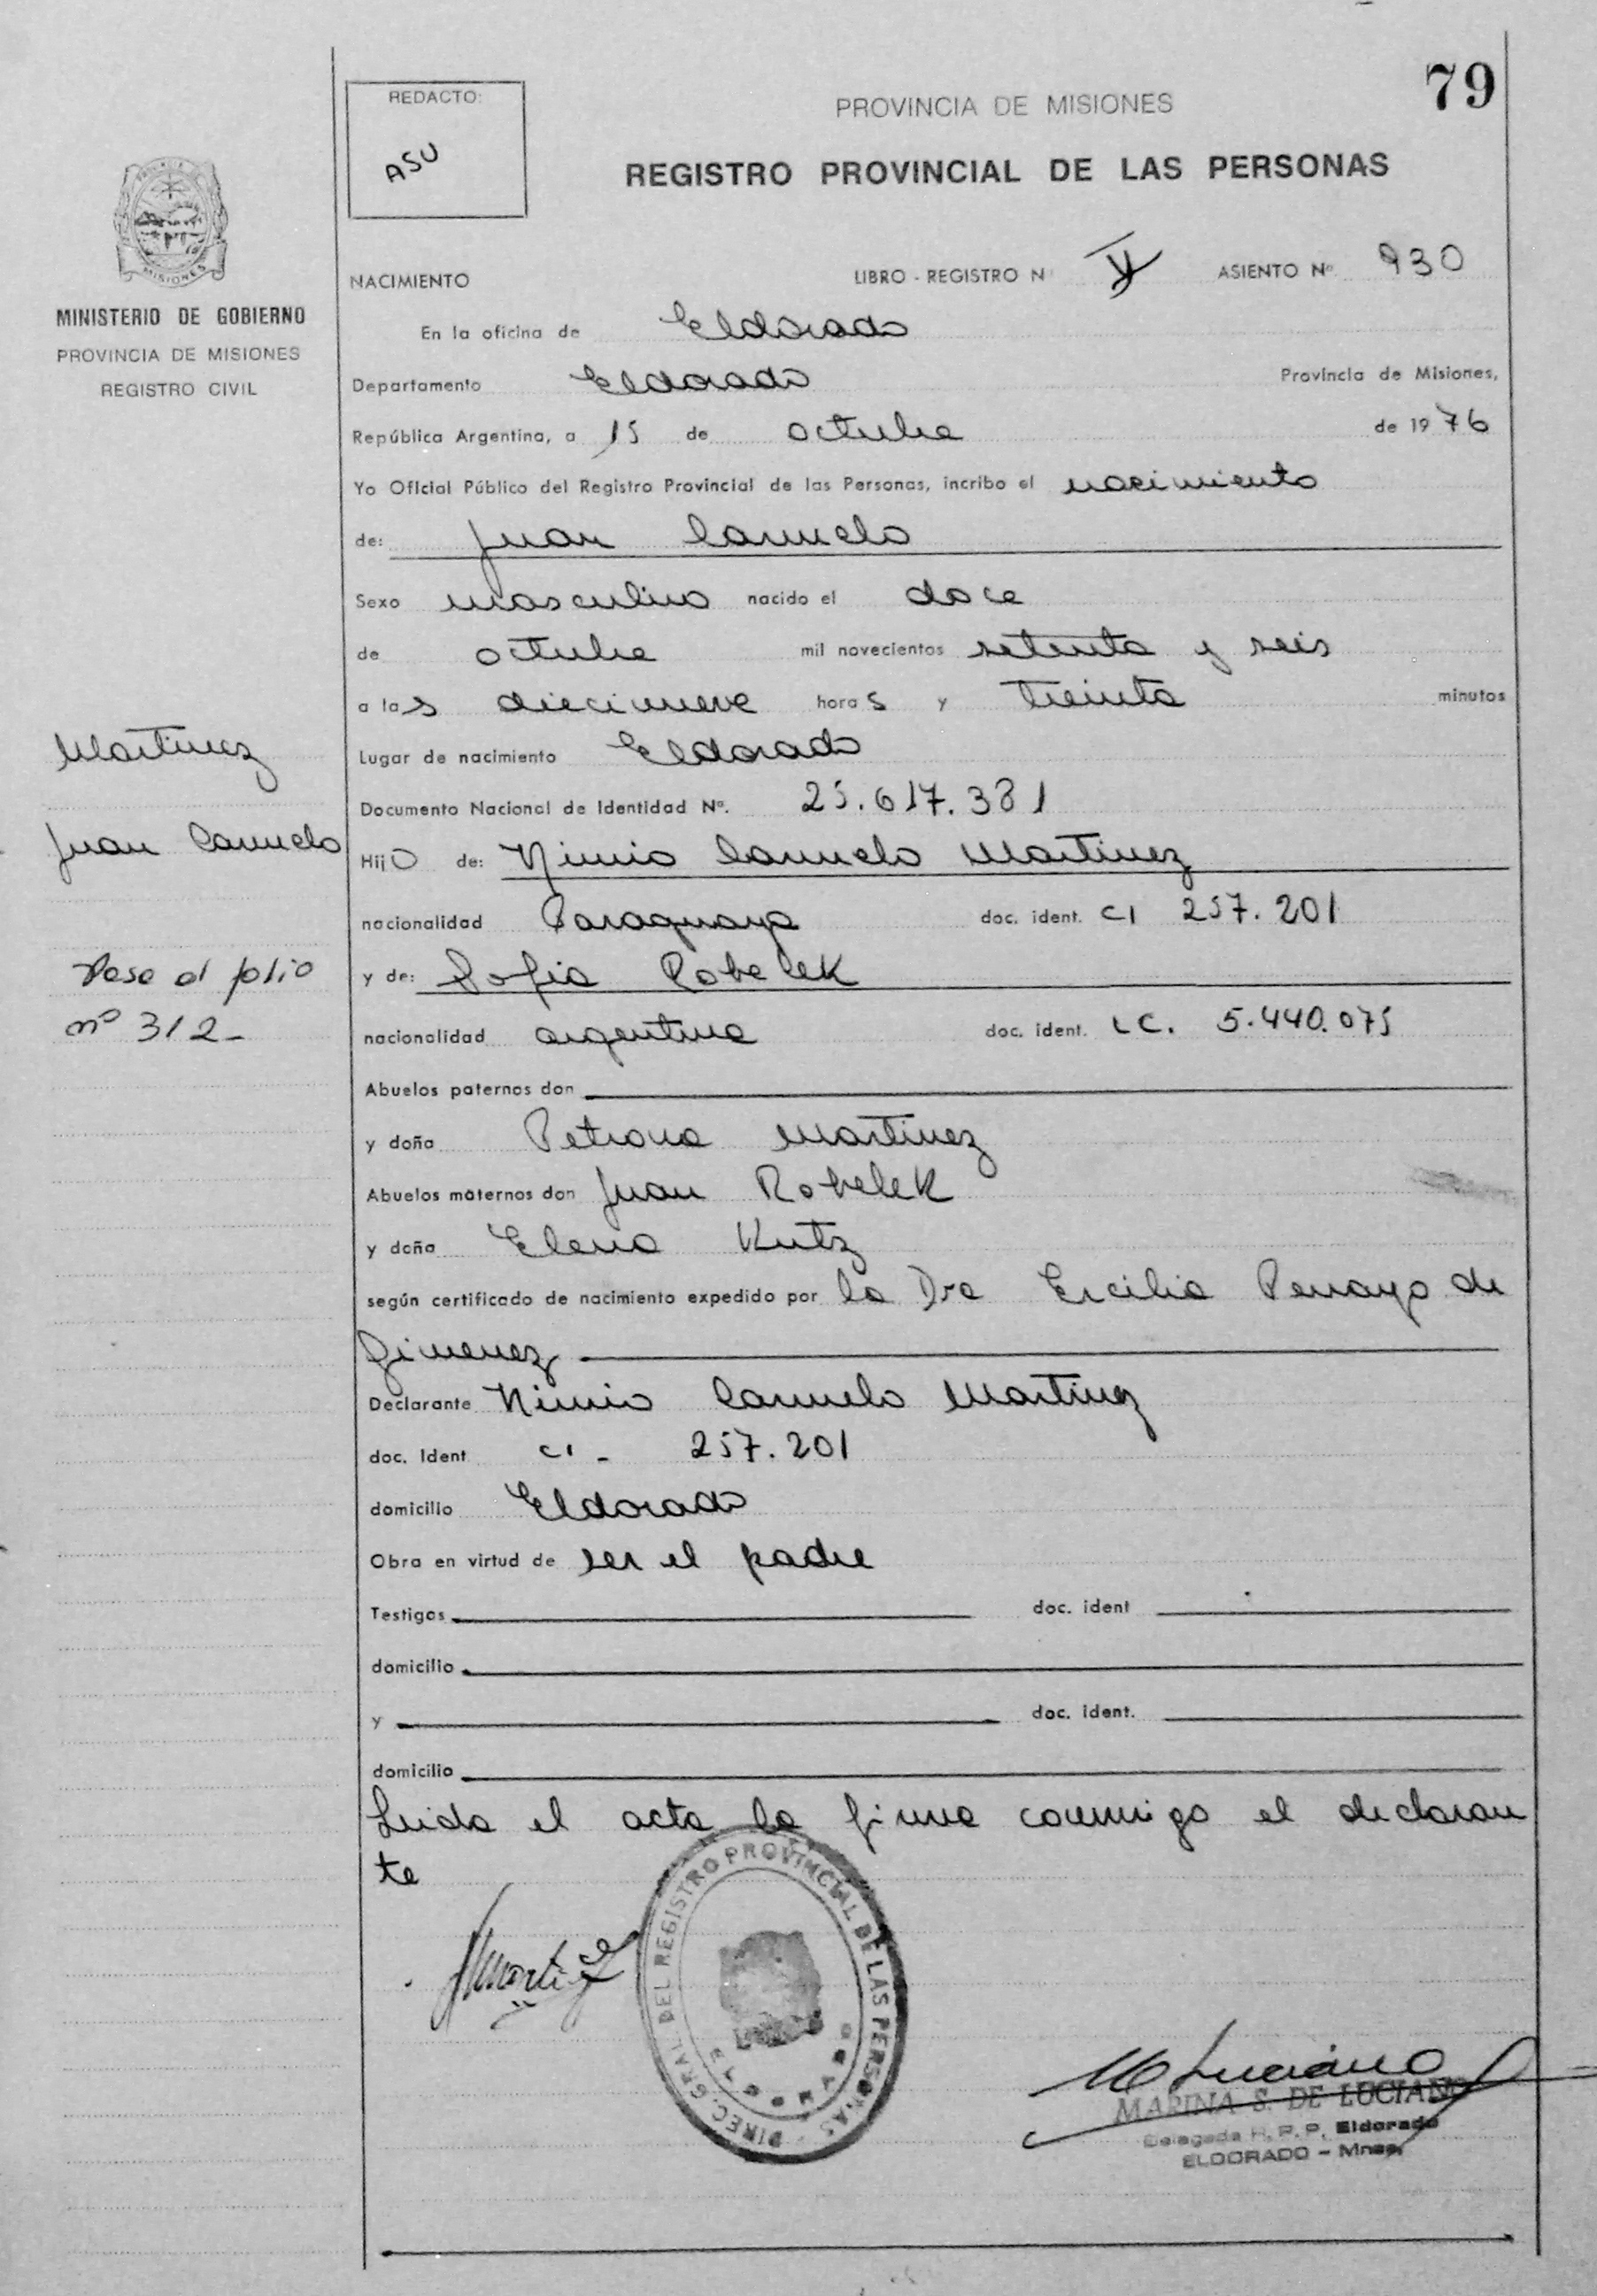 79
REDACTO:
ASU
PROVINCIA DE MISIONES
REGISTRO PROVINCIAL DE LAS PERSONAS
MISIONES
MINISTERIO DE GOBIERNO
PROVINCIA DE MISIONES
REGISTRO CIVIL
NACIMIENTO LIBRO - REGISTRO N° ASIENTO Nº 930
En la oficina de Eldorado
Departamento Eldorado Provincia de Misiones,
República Argentina, a 15 de octubre de 1976
Yo Oficial Público del Registro Provincial de las Personas, incribo el nacimiento
de: Juan Carmelo
Sexo masculino nacido el doce
de octubre mil novecientos setenta y seis
a las diecinueve horas y treinta minutos
Lugar de nacimiento Eldorado
Documento Nacional de Identidad Nº. 25.617.381
Martinez
Juan Carmelo
Hijo de: Nimio Carmelo Martinez
nacionalidad Paraguaya doc. ident. CI 257.201
Pase al folio
nº 312-
y de: Sofia Robelek
nacionalidad argentina doc. ident. LC. 5.440.075
Abuelos paternos don
y doña Petrona Martinez
Abuelos maternos don Juan Robelek
y doña Elena Kutz
según certificado de nacimiento expedido por la Dra Ercilia Penayo de
Gimenez
Declarante Nimio Carmelo Martinez
doc. Ident CI - 257.201
domicilio Eldorado
Obra en virtud de ser el padre
Testigos doc. ident
domicilio
y doc. ident.
domicilio
Leida el acta la firma conmigo el declaran
te
DIREC. GRAL. DEL REGISTRO PROVINCIAL DE LAS PERSONAS
ELDORADO
MARINA S. DE LUCIANO
Delegada R. P. P. Eldorado
ELDORADO - Mnes.